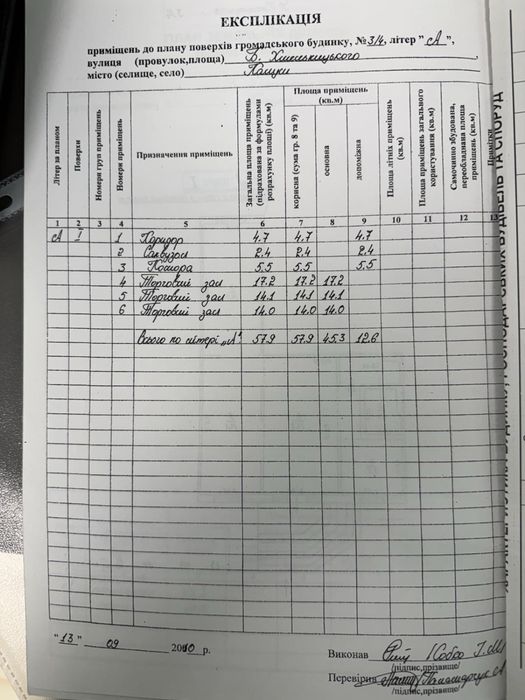 ЕКСПЛІКАЦІЯ
приміщень до плану поверхів громадського будинку, № 3/4, літер "А",
вулиця (провулок,площа) Б. Хмельницького,
місто (селище, село)
Літер за планом
Поверхи
Номери груп приміщень
Номери приміщень
Призначення приміщень
Загальна площа приміщень (підрахована за формулами розрахунку площі) (кв.м)
Площа приміщень (кв.м)
корисна (сума гр. 8 та 9)
основна
допоміжна
Площа літніх приміщень (кв.м)
Площа приміщень загального користування (кв.м)
Самочинно збудована, переобладнана площа приміщень (кв.м)
Примітки
1 2 3 4 5 6 7 8 9 10 11 12 13
А І 1 Коридор 4.7 4.7 4.7
2 Санвузол 2.4 2.4 2.4
3 Комора 5.5 5.5 5.5
4 Торговий зал 17.2 17.2 17.2
5 Торговий зал 14.1 14.1 14.1
6 Торговий зал 14.0 14.0 14.0
Всього по літері „А" 57.9 57.9 45.3 12.6
"13" 09 2010 р.
Виконав
/підпис,прізвище/
Перевірив
/підпис,прізвище/